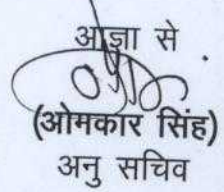 आज्ञा से
(ओमकार सिंह)
अनु सचिव